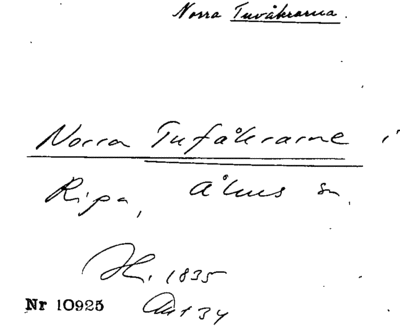 Norra Tuvåkrarna.
Norra Tufåkrarne i
Ripa, Åhus sn.
H. 1835
Nr 10925
Akt 34